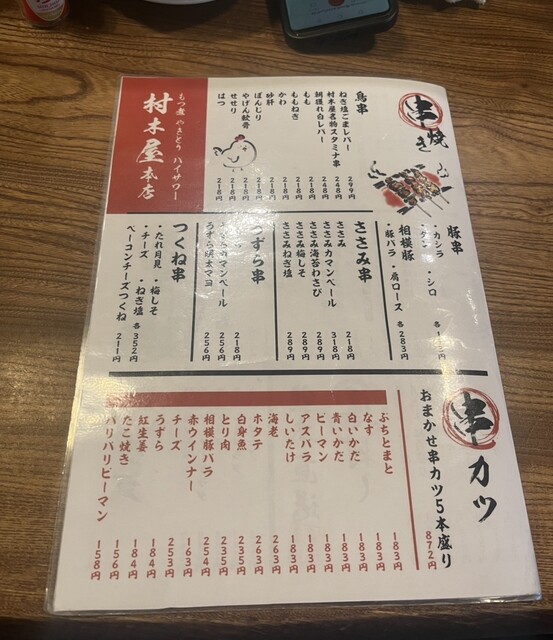 串焼き
鳥串
ねぎ塩ごまレバー 299円
村木屋名物スタミナ串 248円
鯛獲れ白レバー 248円
もも 218円
ももねぎ 218円
かわ 218円
砂肝 218円
ぼんじり 218円
やげん軟骨 218円
せせり 218円
はつ 218円
もつ煮 やきとり ハイサワー
村木屋本店
豚串
・カシラ ・シロ
・タン
相模豚
・豚バラ ・肩ロース 各283円
ささみ串
ささみ 218円
ささみカマンベール 318円
ささみ海苔わさび 289円
ささみ梅しそ 289円
ささみねぎ塩 289円
うずら串
218円
カマンベール 256円
うずら明太マヨ 256円
つくね串
・たれ月見 ・梅しそ
・チーズ ・ねぎ塩 各352円
ベーコンチーズつくね 211円
串カツ
おまかせ串カツ5本盛り 872円
ぷちとまと 183円
なす 183円
白いかだ 183円
青いかだ 183円
ピーマン 183円
アスパラ 183円
しいたけ 183円
海老 263円
ホタテ 263円
白身魚 235円
とり肉 235円
相模豚バラ 254円
赤ウインナー 163円
チーズ 253円
うずら 184円
紅生姜 184円
たこ焼き 156円
パリパリピーマン 158円